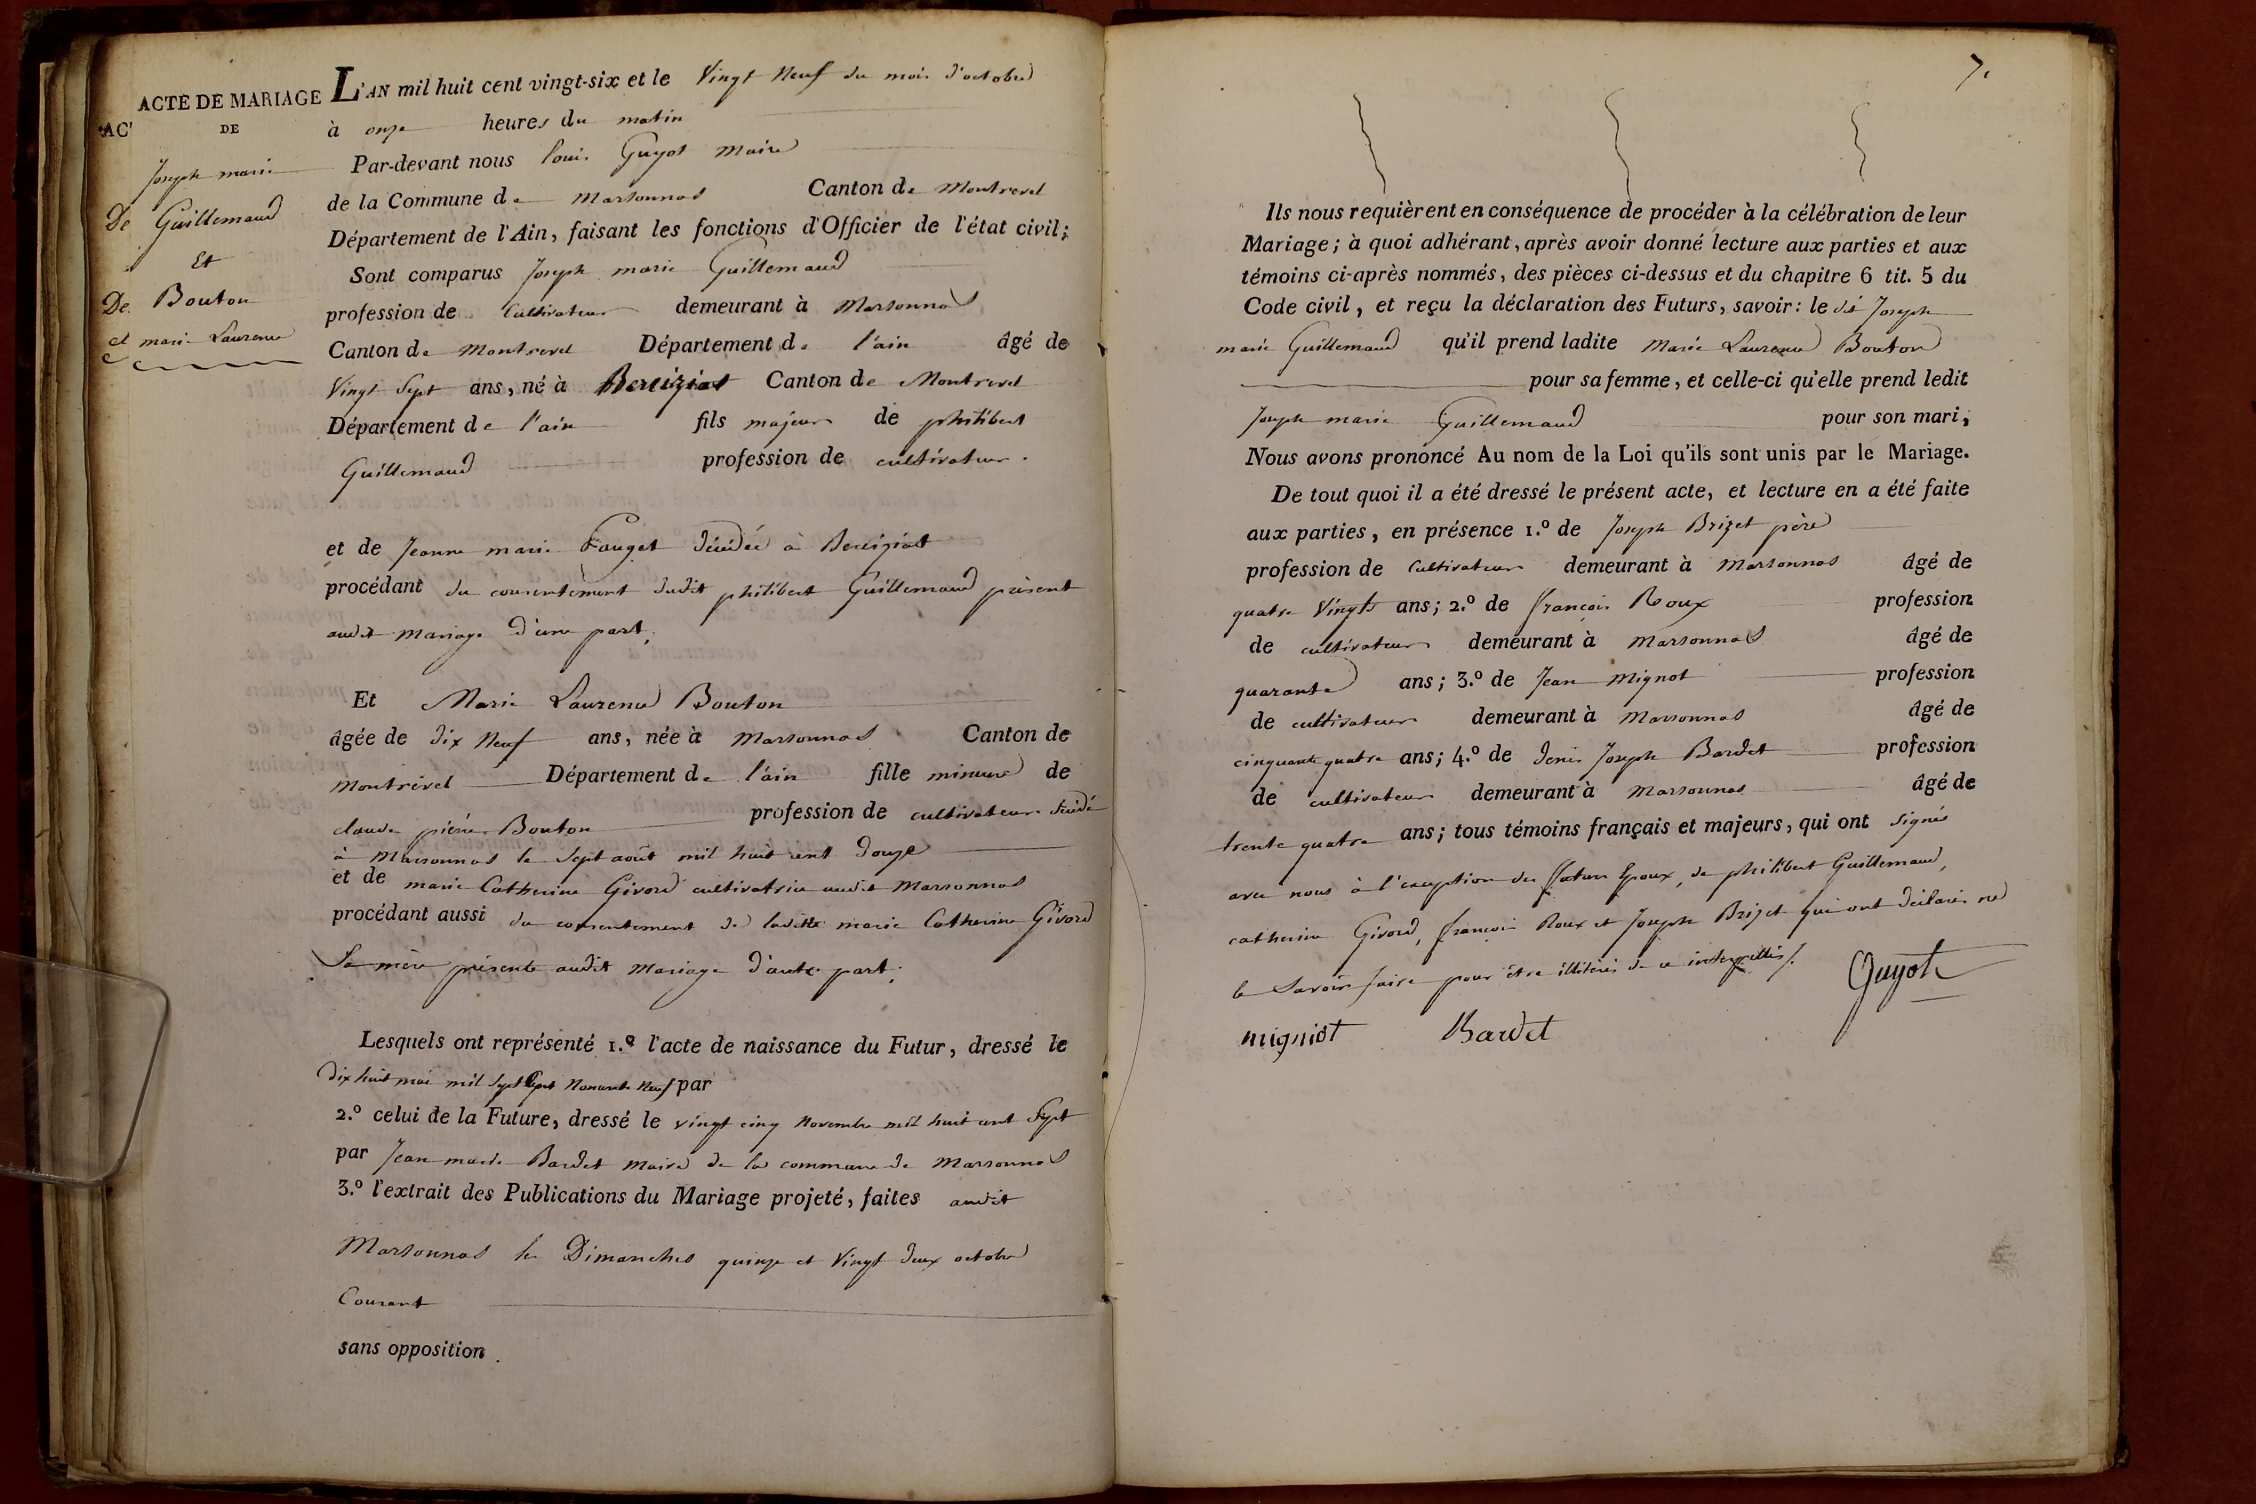 ACTE DE MARIAGE
AC'
DE
Joseph marie
De Guillemaud
Et
De Bouton
et marie Laurence
L'AN mil huit cent vingt-six et le Vingt Neuf du mois d'octobre
à onze heures du matin
Par-devant nous Louis Guyot Maire
de la Commune de Marsonnas Canton de Montrevel
Département de l'Ain, faisant les fonctions d'Officier de l'état civil;
Sont comparus Joseph marie Guillemaud
profession de Cultivateur demeurant à Marsonnas
Canton de Montrevel Département de l'ain âgé de
Vingt Sept ans, né à Bereiziat Canton de Montrevel
Département de l'ain fils majeur de philibert
Guillemaud profession de cultivateur.
et de Jeanne marie décédée à Bereiziat
procédant du consentement dudit philibert Guillemaud présent
audit Mariage d'une part;
Et Marie Laurence Bouton
âgée de dix Neuf ans, née à Marsonnas Canton de
Montrevel Département de l'ain fille mineure de
claude pierre Bouton profession de cultivateur décédé
à Marsonnas le Sept août mil huit cent douze
et de marie Catherine Givord cultivatrice audit Marsonnas
procédant aussi du consentement de ladite marie Catherine Givord
Sa mère présente audit Mariage d'autre part;
Lesquels ont représenté 1.º l'acte de naissance du Futur, dressé le
dix huit mai mil Sept Cent Nonante Neuf par
2.º celui de la Future, dressé le vingt cinq Novembre mil huit cent Sept
par Jean marie Bardet Maire de la commune de Marsonnas
3.º l'extrait des Publications du Mariage projeté, faites audit
Marsonnas les Dimanches quinze et Vingt deux octobre
Courant
sans opposition.
7.
Ils nous requièrent en conséquence de procéder à la célébration de leur
Mariage; à quoi adhérant, après avoir donné lecture aux parties et aux
témoins ci-après nommés, des pièces ci-dessus et du chapitre 6 tit. 5 du
Code civil, et reçu la déclaration des Futurs, savoir: le dit Joseph
marie Guillemaud qu'il prend ladite Marie Laurence Bouton
pour sa femme, et celle-ci qu'elle prend ledit
Joseph marie Guillemaud pour son mari,
Nous avons prononcé Au nom de la Loi qu'ils sont unis par le Mariage.
De tout quoi il a été dressé le présent acte, et lecture en a été faite
aux parties, en présence 1.º de Joseph Brizet père
profession de Cultivateur demeurant à Marsonnas âgé de
quatre Vingts ans; 2.º de françois Roux profession
de cultivateur demeurant à Marsonnas âgé de
quarante ans; 3.º de Jean Mignot profession
de cultivateur demeurant à Marsonnas âgé de
cinquante quatre ans; 4.º de denis Joseph Bardet profession
de cultivateur demeurant à Marsonnas âgé de
trente quatre ans; tous témoins français et majeurs, qui ont signés
avec nous à l'exception des futurs Epoux, de philibert Guillemaud,
catherine Givord, françois Roux et Joseph Brizet qui ont déclarés ne
le Savoir faire pour être illitérés de ce interpellés/.
Guyot
migniot Bardet